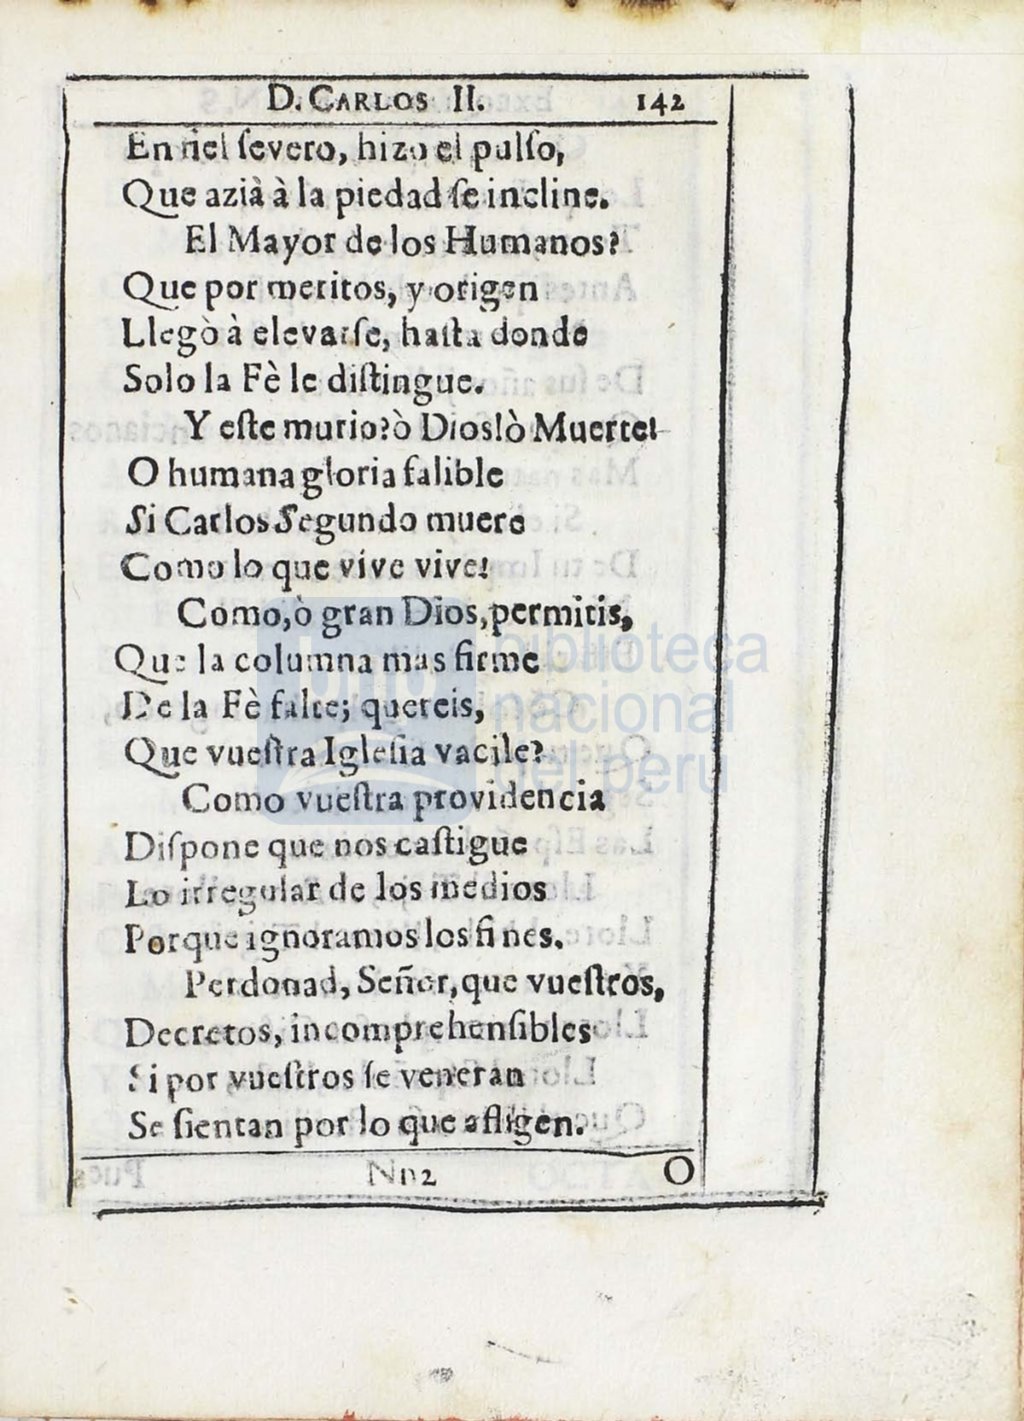 D. CARLOS II. 142
En fiel ſevero, hizo el pulſo,
Que azià à la piedad ſe incline.
El Mayor de los Humanos?
Que por meritos, y origen
Llegò à elevarſe, haſta donde
Solo la Fè le diſtingue.
Y eſte murio? ò Dios! ò Muerte!
O humana gloria falible
Si Carlos Segundo muere
Como lo que vive vive!
Como, ò gran Dios, permitis,
Que la columna mas firme
De la Fè falte; quereis,
Que vueſtra Igleſia vacile?
Como vueſtra providencia
Diſpone que nos caſtigue
Lo irregular de los medios
Porque ignoramos los fines.
Perdonad, Señor, que vueſtros,
Decretos, incomprehenſibles
Si por vueſtros ſe veneran
Se ſientan por lo que afligen.
Nn2 O
biblioteca
nacional
del perú